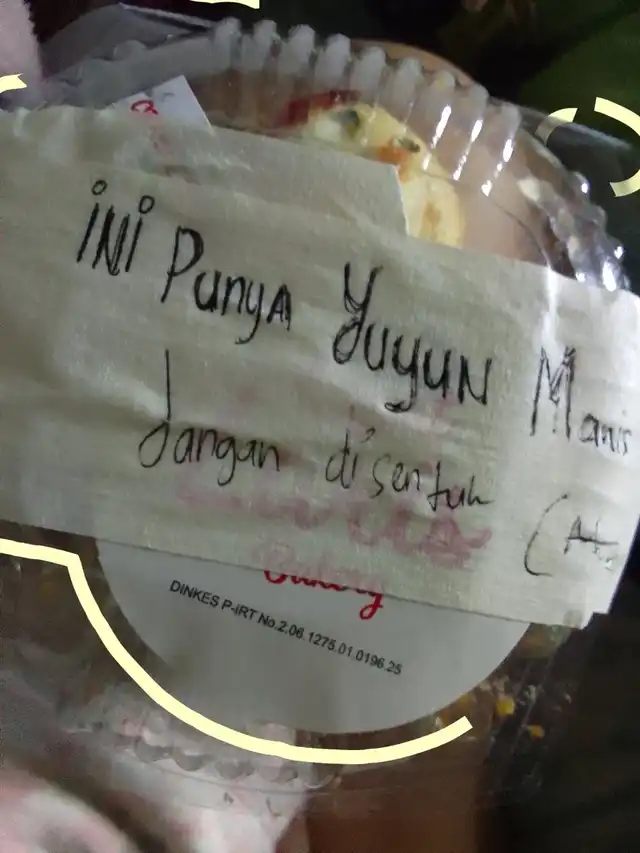 iNi PunyA YuyuN Manis
Jangan disentuh
Bakery
DINKES P-IRT No.2.06.1275.01.0196.25